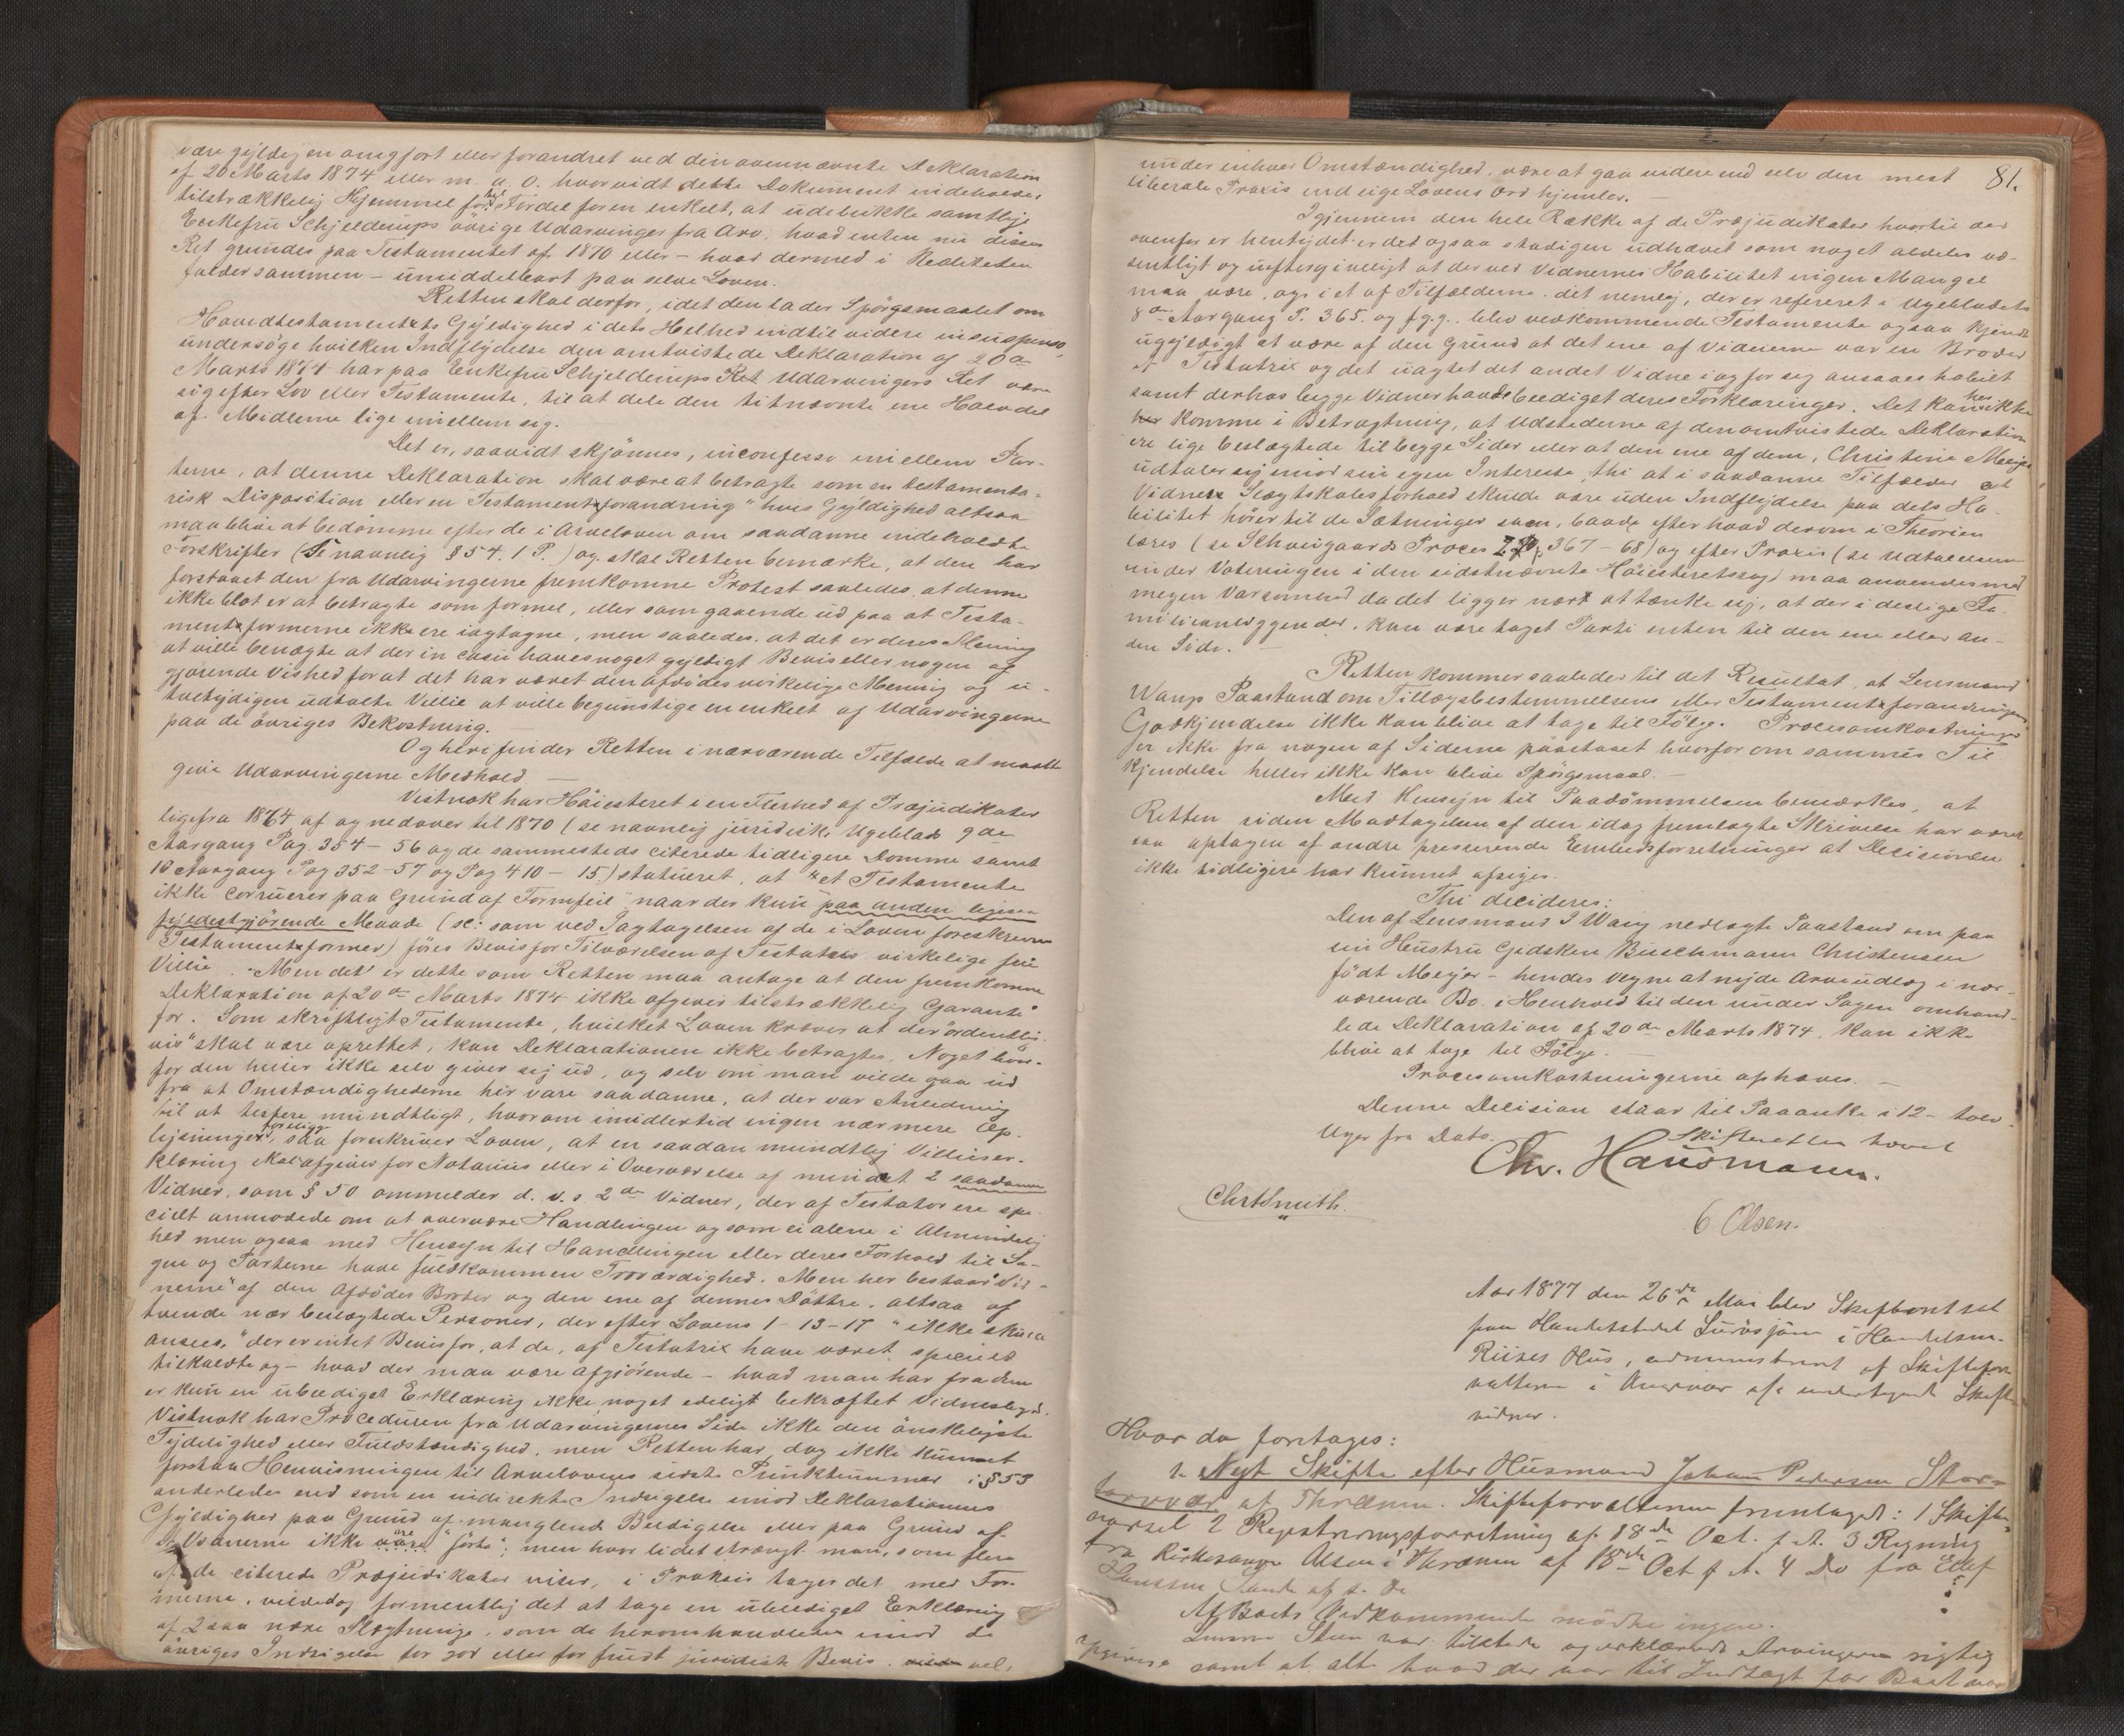 være gyldig en omgjort eller forandret ved den ovennævnte Deklaration
af 20 Marts 1874 eller m. a. O. hvorvidt dette Dokument indeholder
tilstrækkelig Hjemmel for til Fordel for en enkelt, at udelukke samtlige
Enkefru Schjelderups övrige Udarvinger fra Arv, hvad enten nu disses
Ret grundes paa Testamentet af 1870 eller – hvad dermed i Realiteten
falder sammen – umiddelbart paa selve Loven.
Retten skal derfor, idet den lader Spörgsmaalet om
Hovedtestamentets Gyldighed i dets Helhed indtil videre in suspenso,
undersöge hvilken Indflydelse den omtvistede Deklaration af 20de
Marts 1874 har paa Enkefru Schjelderups Ret Udarvingers Ret være
sig efter Lov eller Testamente, til at dele den titnævnte ene Halvdel
af Midlerne lige imellem sig.
Det er, saavidt skjönnes, inconfesso imellem Par-
terne, at denne Deklaration skal være at betragte som en testamenta-
risk Disposition eller en Testamentsforandring" hvis Gyldighed altsaa
maa blive at bedömme efter de i Arveloven om saadanne indeholdte
Forskrifter (Se navnlig § 54. 1 P.) og skal Retten bemærke, at den har
forstaaet den fra Udarvingerne fremkomne Protest saaledes, at denne
ikke blot er at betragte som formel, eller som gaaende ud paa at Testa-
mentsformerne ikke ere iagtagne, men saaledes, at det er deres Mening
at ville benægte at der in casu haves noget gyldigt Bevis eller nogen af-
gjörende Vished for at det har været den afdödes virkelige Mening og u-
tvetydigen udtalte Villie at ville begunstige en enkelt af Udarvingerne
paa de övriges Bekostning.
Og heri finder Retten i nærværende Tilfælde at maatte
give Udarvingerne Medhold. —
Vistnok har Höiesteret i en Flerhed af Præjudikater
ligefra 1864 af og nedover til 1870 (se navnlig juridisk Ugeblad 9de
Aargang Pag. 354 – 56 og de sammesteds citerede tidligere Domme samt
10 Aargang Pag 352 – 57 og Pag 410 – 15) statueret, at "et Testamente
ikke corruerer paa Grund af Formfeil naar der kun paa anden ligesaa
fyldestgjörende Maade (sc: som ved Iagtagelsen af de i Loven foreskrevne
Testamentsformer) föres Bevis for Tilværelsen af Testators virkelige frie
Villie. – Men det er dette som Retten maa antage at den fremkomne
Deklaration af 20de Marts 1874 ikke afgiver tilstrækkelig Garanti
for. Som skriftligt Testamente, hvilket Loven kræver at der "ordentlig-
vis" skal være oprettet, kan Deklarationen ikke betragtes, Noget hvor-
for den heller ikke selv giver sig ud, og selv om man vilde gaa ud
fra at Omstændighederne her vare saadanne, at der var Anledning
til at testere mundtligt, hvorom imidlertid ingen nærmere Op-
lysninger foreligge, saa foreskriver Loven, at en saadan mundtlig Villieser-
klæring skal afgives for Notarius eller i Overværelse af mindst 2 saadanne
Vidner, som § 50 ommelder d. v. s. 2de Vidner, der af Testator ere spe-
cielt anmodede om at overvære Handlingen og som ei alene i Almindelig-
hed men ogsaa med Hensyn til Handlingen eller deres Forhold til Sa-
gen og Parterne have fuldkommen Troværdighed. Men her bestaar Vid-
nerne af den Afdödes Broder og den ene af dennes Döttre, altsaa af
tvende nær beslægtede Personer, der efter Lovens 1 – 13 – 17 "ikke skulle
ansees," der er intet Bevis for, at de, af Testatrix have været specielt
tilkaldte og – hvad der maa være afgjörende – hvad man har fra dem
er kun en ubeediget Erklæring ikke noget edeligt bekræftet Vidnesbyrd.
Vistnok har Proceduren fra Udarvingernes Side ikke den önskeligste
Tydelighed eller Fuldstændighed, men Retten har dog ikke kunnet
forstaa Henvisningen til Arvelovens sidste Punktummer i § 53
anderledes end som en indirekte Indsigelse imod Deklarationens
Gyldighed paa Grund af manglende Beedigelse eller paa Grund af
at Vidnerne ikke vare "förte"; men hvor lidet strængt man, som flere
af de citerede Præjudikater viser, i Praksis tager det med For-
merne, vilde dog formentlig det at tage en ubeediget Erklæring
af 2 saa nære Slægtninge, som de heromhandlede imod de
övriges Indsigelse for god eller for fuldt juridisk Bevis, vel,
81.
under enhver Omstændighed, være at gaa videre end selv den mest
liberale Praxis end sige Lovens Ord hjemler. —
Igjennem den hele Række af de Præjudikater hvortil der
ovenfor er hentydet er det ogsaa stadigen udhævet som noget aldeles væ-
sentligt og ueftergiveligt at der ved Vidnernes Habilitet ingen Mangel
maa være, og i et af Tilfælderne, det nemlig, der er refereret i Ugebladets
8de Aargang P. 365. og fg.g., blev vedkommende Testamente ogsaa kjendt
ugyldigt at være af den Grund at det ene af Vidnerne var en Broder
af Testatrix og det uagtet det andet Vidne i og for sig ansaaes habilt
samt derhos begge Vidner havde beediget deres Forklaringer. Det kan her ikke
komme i Betragtning, at Udstederne af den omtvistede Deklaration
ere lige beslægtede til begge Sider eller at den ene af dem, Christine Meyer
udtaler sig imod sin egen Interesse, thi at i saadanne Tilfælder et
Vidnes Slægtskabsforhold skulde være uden Indflydelse paa dets Ha-
bilitet hörer til de Sætninger som, baade efter hvad derom i Theorien
læres (se Schweigaards Proces 367 – 68) og efter Praxis (se Udtalelserne
under Voteringen i den sidstnævnte Höiesteretssag) maa anvendes med
megen Varsomhed da det ligger nært at tænke sig, at der i deslige Fa-
milieanliggender, kan være taget Parti enten til den ene eller an-
den Side. —
Retten kommer saaledes til det Resultat, at Lensmand
Wangs Paastand om Tillægsbestemmelsens eller Testamentsforandringens
Godkjendelse ikke kan blive at tage til Fölge. Procesomkostninger
er ikke fra nogen af Siderne paastaaet hvorfor om sammes Til-
kjendelse heller ikke kan blive Spörgsmaal. —
Med Hensyn til Paadömmelsen bemærkes, at
Retten siden Modtagelsen af den idag fremlagte Skrivelse har været
saa optagen af andre presserende Embedsforretninger at Decisionen
ikke tidligere har kunnet afsiges.
Thi decideres:
Den af Lensmand I Wang nedlagte Paastand om paa
sin Hustru Gjedsken Buschmann Christensen
födt Meyer – hendes Vegne at nyde Arveudlæg i nær-
værende Bo i Henhold til den under Sagen omhand-
lede Deklaration af 20de Marts 1874, kan ikke
blive at tage til Fölge. —
Procesomkostningerne ophæves. —
Denne Decision staar til Paaanke i 12 – tolv
Uger fra Dato.
Skifteretten hævet
Chr. Hausmann.
Chr Smith.
C Olsen.
Aar 1877 den 26de Mai blev Skifteret sat
paa Handelsstedet Surösjöen i Handelsm.
Riises Hus, administreret af Skiftefor-
valteren i Overvær af undertegnede Skifte-
vidner.
Hvor da foretages:
1. Nyt Skifte efter Husmand Johan Pedersen Stor-
af Thrænen. Skifteforvalteren fremlagde: 1 Skifte-
2 Registreringsforretning af 18de Oct. f A. 3 Regning
fra Kirkesanger Olsen i Thrænen af 18de Oct f A. 4 Do fra Elef
Hanssen Sande af s. D.
Af Boets Vedkommende mödte ingen.
Steen var tilstede og erklærede Arvingerne rigtig
opgivne samt at alt hvad der var til Indtægt for Boet var